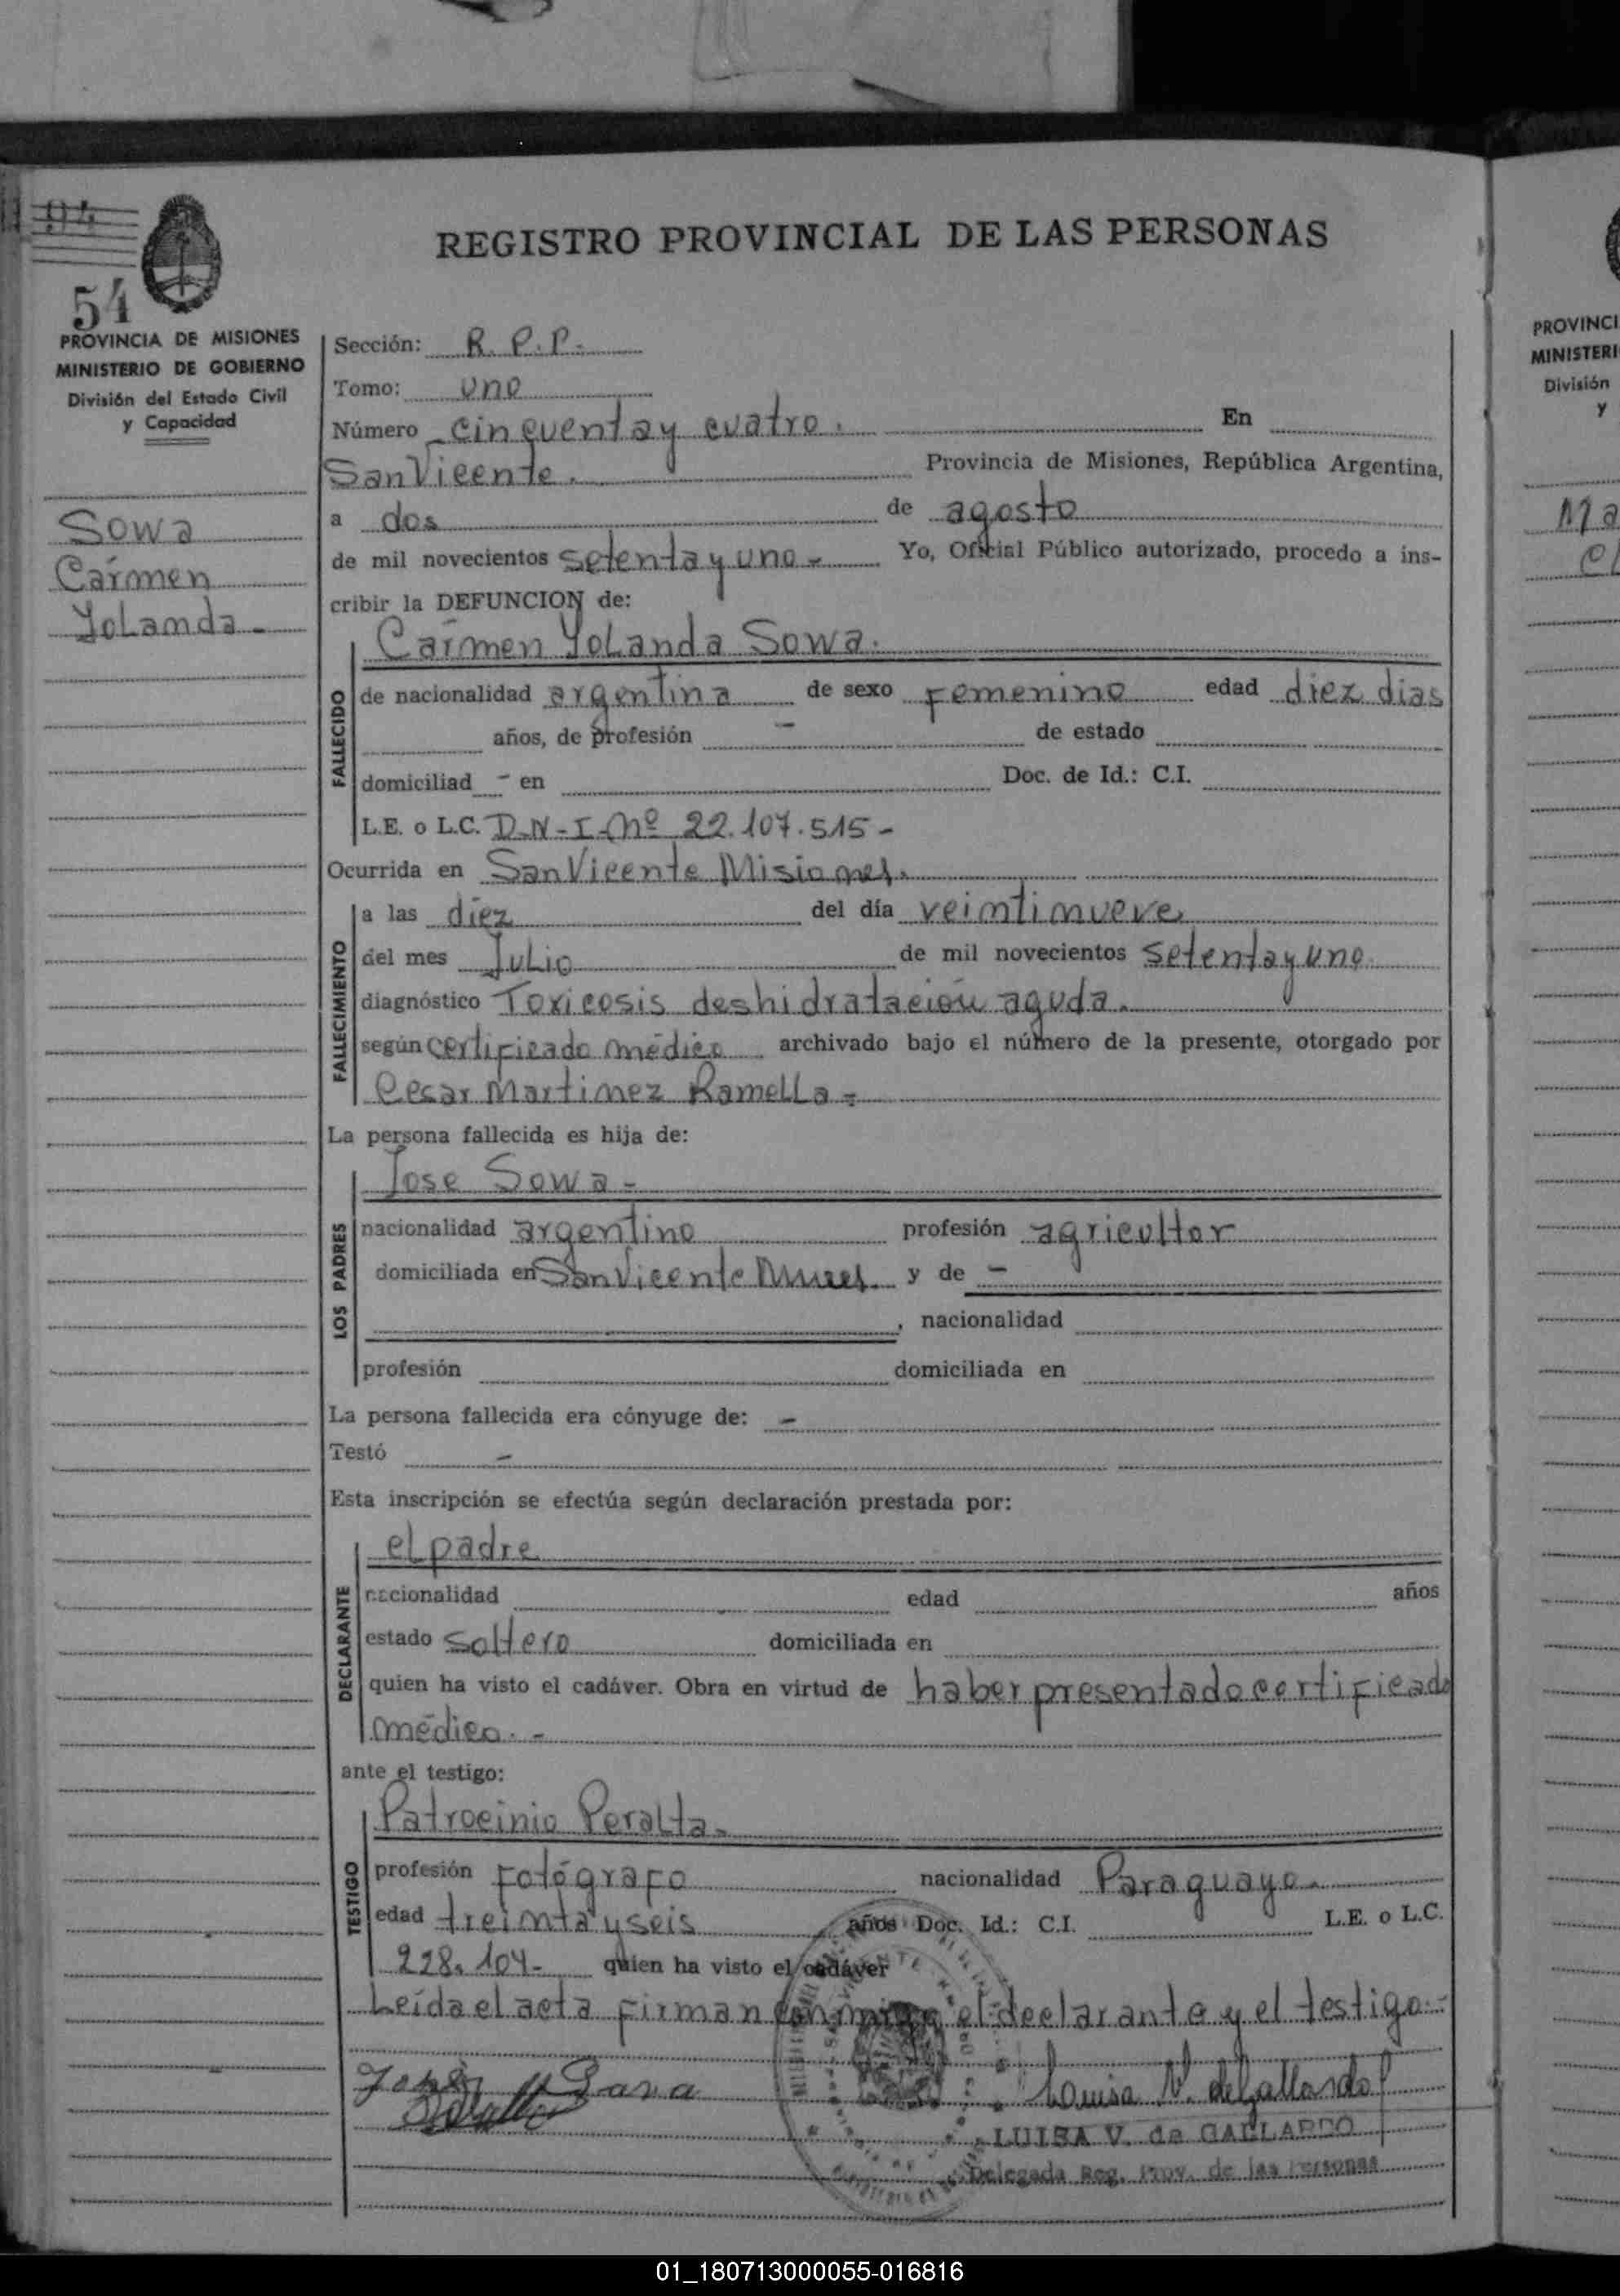 REGISTRO PROVINCIAL DE LAS PERSONAS
54
PROVINCIA DE MISIONES
MINISTERIO DE GOBIERNO
División del Estado Civil
y Capacidad
Sowa
Carmen
Yolanda -
Sección: R. P. P. -
Tomo: uno
Número cincuenta y cuatro. En
San Vicente. Provincia de Misiones, República Argentina,
a dos de agosto
de mil novecientos setenta y uno - Yo, Oficial Público autorizado, procedo a ins-
cribir la DEFUNCION de:
Carmen Yolanda Sowa.
FALLECIDO
de nacionalidad argentina de sexo Femenino edad diez dias
años, de profesión - de estado
domiciliad - en Doc. de Id.: C.I.
L.E. o L.C. D-N-I-Nº 22.107.515-
Ocurrida en San Vicente Misiones.
FALLECIMIENTO
a las diez del día veintinueve
del mes Julio de mil novecientos setenta y uno
diagnóstico Toxicosis deshidratación aguda.
según certificado médico archivado bajo el número de la presente, otorgado por
Cesar Martinez Ramella -
La persona fallecida es hija de:
Jose Sowa -
LOS PADRES
nacionalidad argentino profesión agricultor
domiciliada en San Vicente Mnes. y de -
, nacionalidad
profesión domiciliada en
La persona fallecida era cónyuge de: -
Testó -
Esta inscripción se efectúa según declaración prestada por:
el padre
DECLARANTE
nacionalidad edad años
estado soltero domiciliada en
quien ha visto el cadáver. Obra en virtud de haber presentado certificado
médico. -
ante el testigo:
Patrocinio Peralta -
TESTIGO
profesión Fotógrafo nacionalidad Paraguayo.
edad treinta y seis años Doc. Id.: C.I. L.E. o L.C.
228.104- quien ha visto el cadáver
Leída el acta firman conmigo el declarante y el testigo.-
José
Luisa V. de Gallardo
LUISA V. de GALLARDO
Delegada Reg. Prov. de las Personas
PROVINCI
MINISTERI
División
y
Ma
01_180713000055-016816